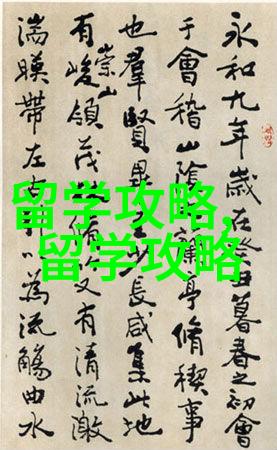 永和九年歲在癸丑暮春之初會
于會稽山陰蘭亭脩稧事
也羣賢畢至少長咸集此地
有崇山峻領茂脩又有清流激
湍暎帶左右以為流觴曲水
留学攻略,
留学攻略